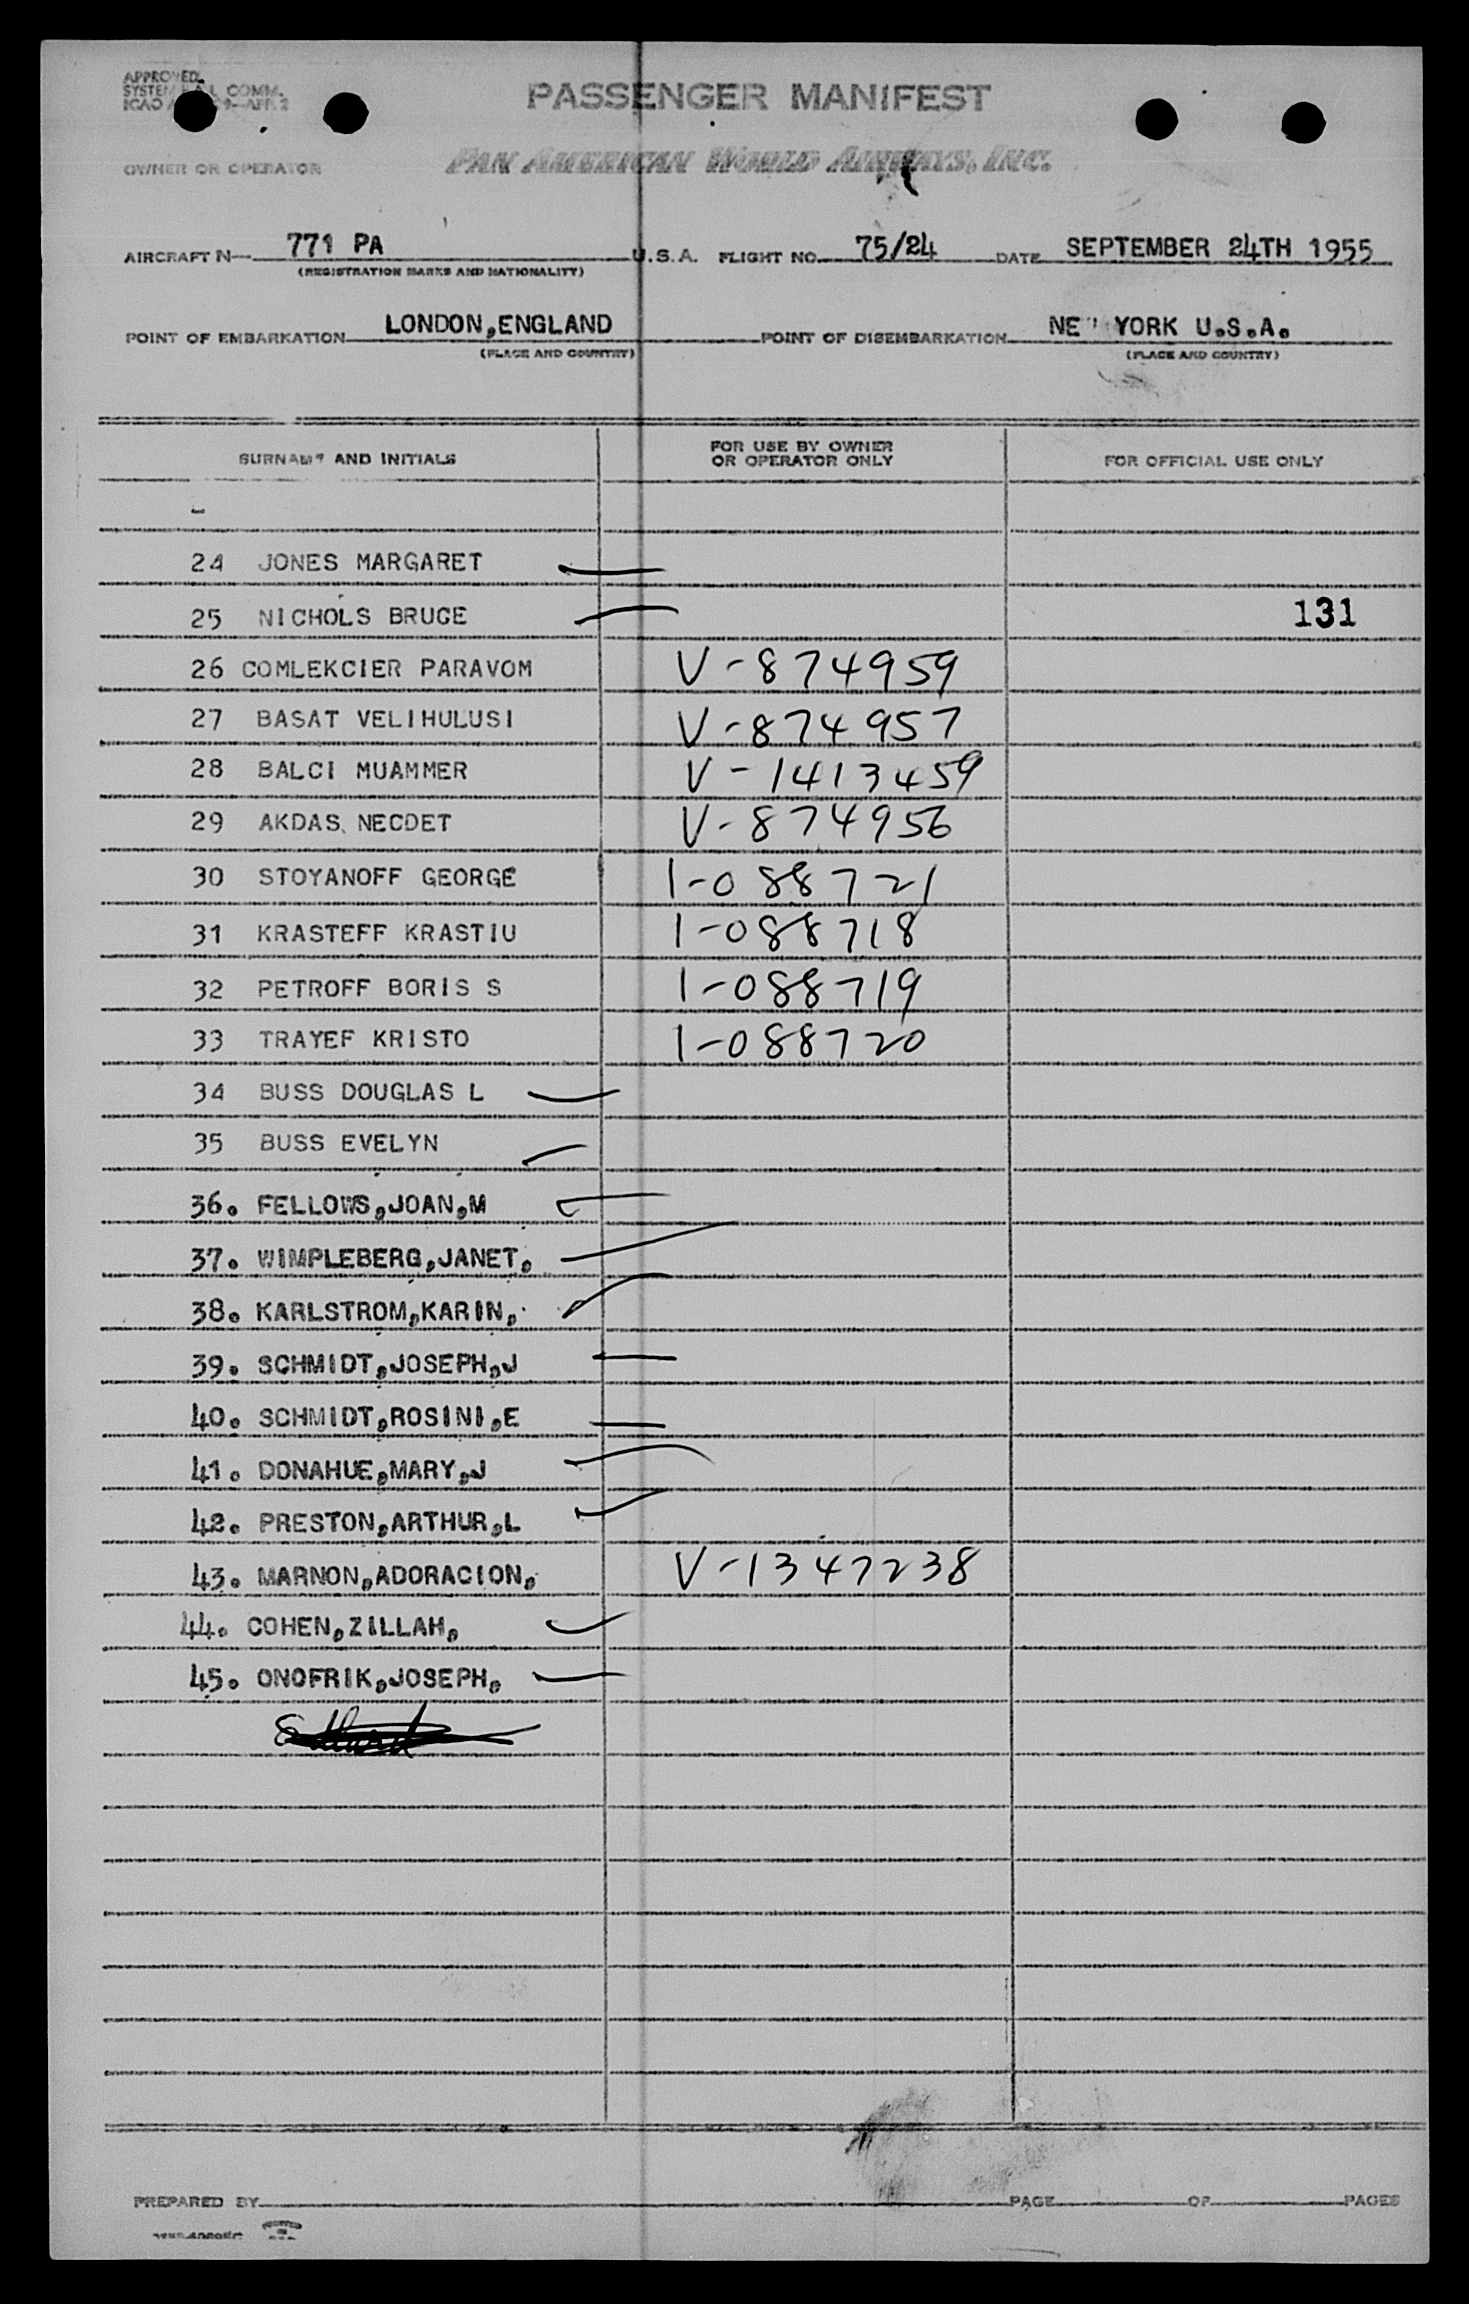 APPROVED
PASSENGER MANIFEST
OWNER OR OPERATOR PAN AMERICAN WORLD AIRWAYS, INC.
AIRCRAFT N— 771 PA U.S.A. FLIGHT NO. 75/24 DATE SEPTEMBER 24TH 1955
(REGISTRATION MARKS AND NATIONALITY)
POINT OF EMBARKATION LONDON,ENGLAND POINT OF DISEMBARKATION NEW YORK U.S.A.
(PLACE AND COUNTRY) (PLACE AND COUNTRY)
SURNAME AND INITIALS FOR USE BY OWNER OR OPERATOR ONLY FOR OFFICIAL USE ONLY
24 JONES MARGARET
25 NICHOLS BRUCE 131
26 COMLEKCIER PARAVOM V-874959
27 BASAT VELIHULUSI V-874957
28 BALCI MUAMMER V-1413459
29 AKDAS NECDET V-874956
30 STOYANOFF GEORGE 1-088721
31 KRASTEFF KRASTIU 1-088718
32 PETROFF BORIS S 1-088719
33 TRAYEF KRISTO 1-088720
34 BUSS DOUGLAS L
35 BUSS EVELYN
36. FELLOWS,JOAN,M
37. WIMPLEBERG,JANET,
38. KARLSTROM,KARIN,
39. SCHMIDT,JOSEPH,J
40. SCHMIDT,ROSINI,E
41. DONAHUE,MARY,J
42. PRESTON,ARTHUR,L
43. MARNON,ADORACION, V-1347238
44. COHEN,ZILLAH,
45. ONOFRIK,JOSEPH,
PREPARED BY PAGE OF PAGES